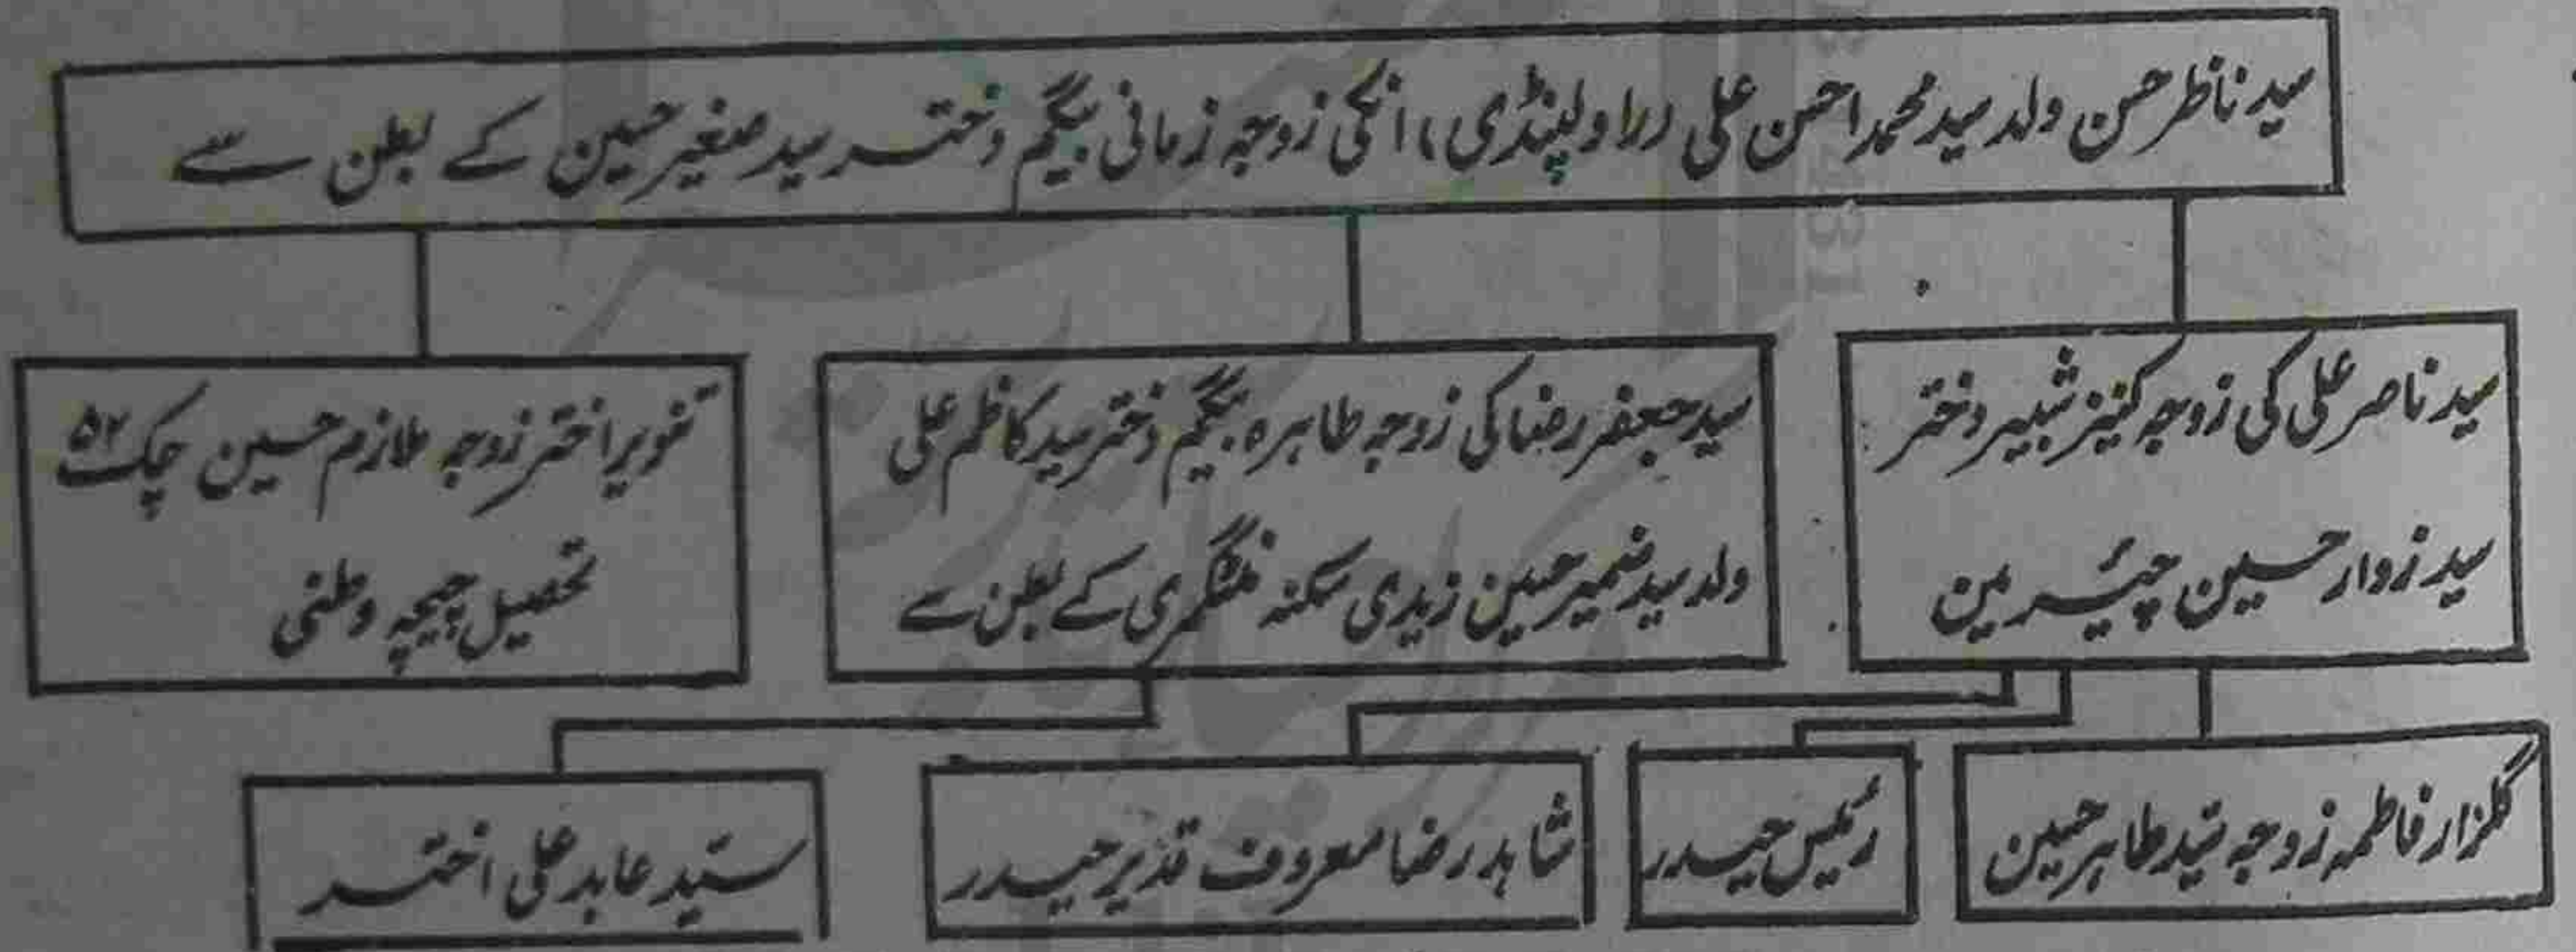 سید ناظر حسن ولد سید محمد احسن علی (راولپنڈی)، انکی زوجہ زمانی بیگم دختر سید صغیر حسین کے بطن سے
سید ناصر علی کی زوجہ کنیز شبیر دختر
سید زوار حسین چیئرمین
سید جعفر رضا کی زوجہ طاہرہ بیگم دختر سید کاظم علی
ولد سید ضمیر حسین زیدی سکنہ منٹگمری کے بطن سے
تنویر اختر زوجہ ملازم حسین چک ۵۲
تحصیل چیچہ وطنی
گلزار فاطمہ زوجہ سید طاہر حسین
رئیس حیدر
شاہد رضا معروف قدیر حیدر
سید عابد علی اختر